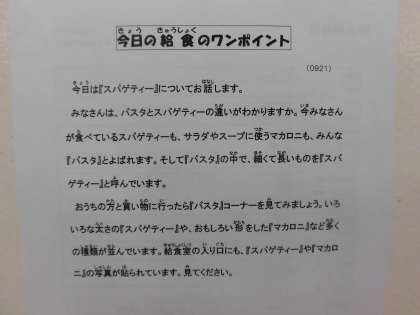 今日の給食のワンポイント
(0921)
今日は『スパゲティー』についてお話します。
みなさんは、パスタとスパゲティーの違いがわかりますか。今みなさん
が食べているスパゲティーも、サラダやスープに使うマカロニも、みんな
『パスタ』とよばれます。そして『パスタ』の中で、細くて長いものを『スパ
ゲティー』と呼んでいます。
おうちの方と買い物に行ったら『パスタ』コーナーを見てみましょう。いろ
いろな太さの『スパゲティー』や、おもしろい形をした『マカロニ』など多く
の種類が並んでいます。給食室の入り口にも、『スパゲティー』や『マカロ
ニ』の写真が貼られています。見てください。